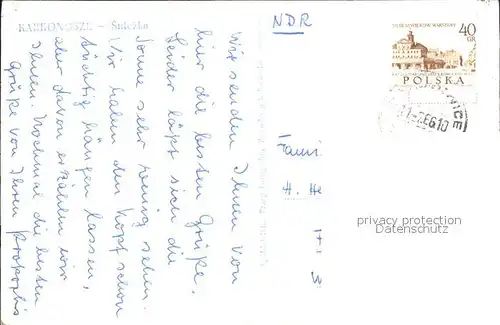 KARKONOSZE - Śnieżka
NDR
Wir senden Ihnen von
hier die besten Grüße.
Leider läßt sich die
Sonne sehr wenig sehen.
Wir haben den Kopf schon
tüchtig hängen lassen,
aber davon erzählen wir
Ihnen. Nochmal die besten
Grüße von Ihren
40
GR
POLSKA
Fami
H. He
privacy protection
Datenschutz